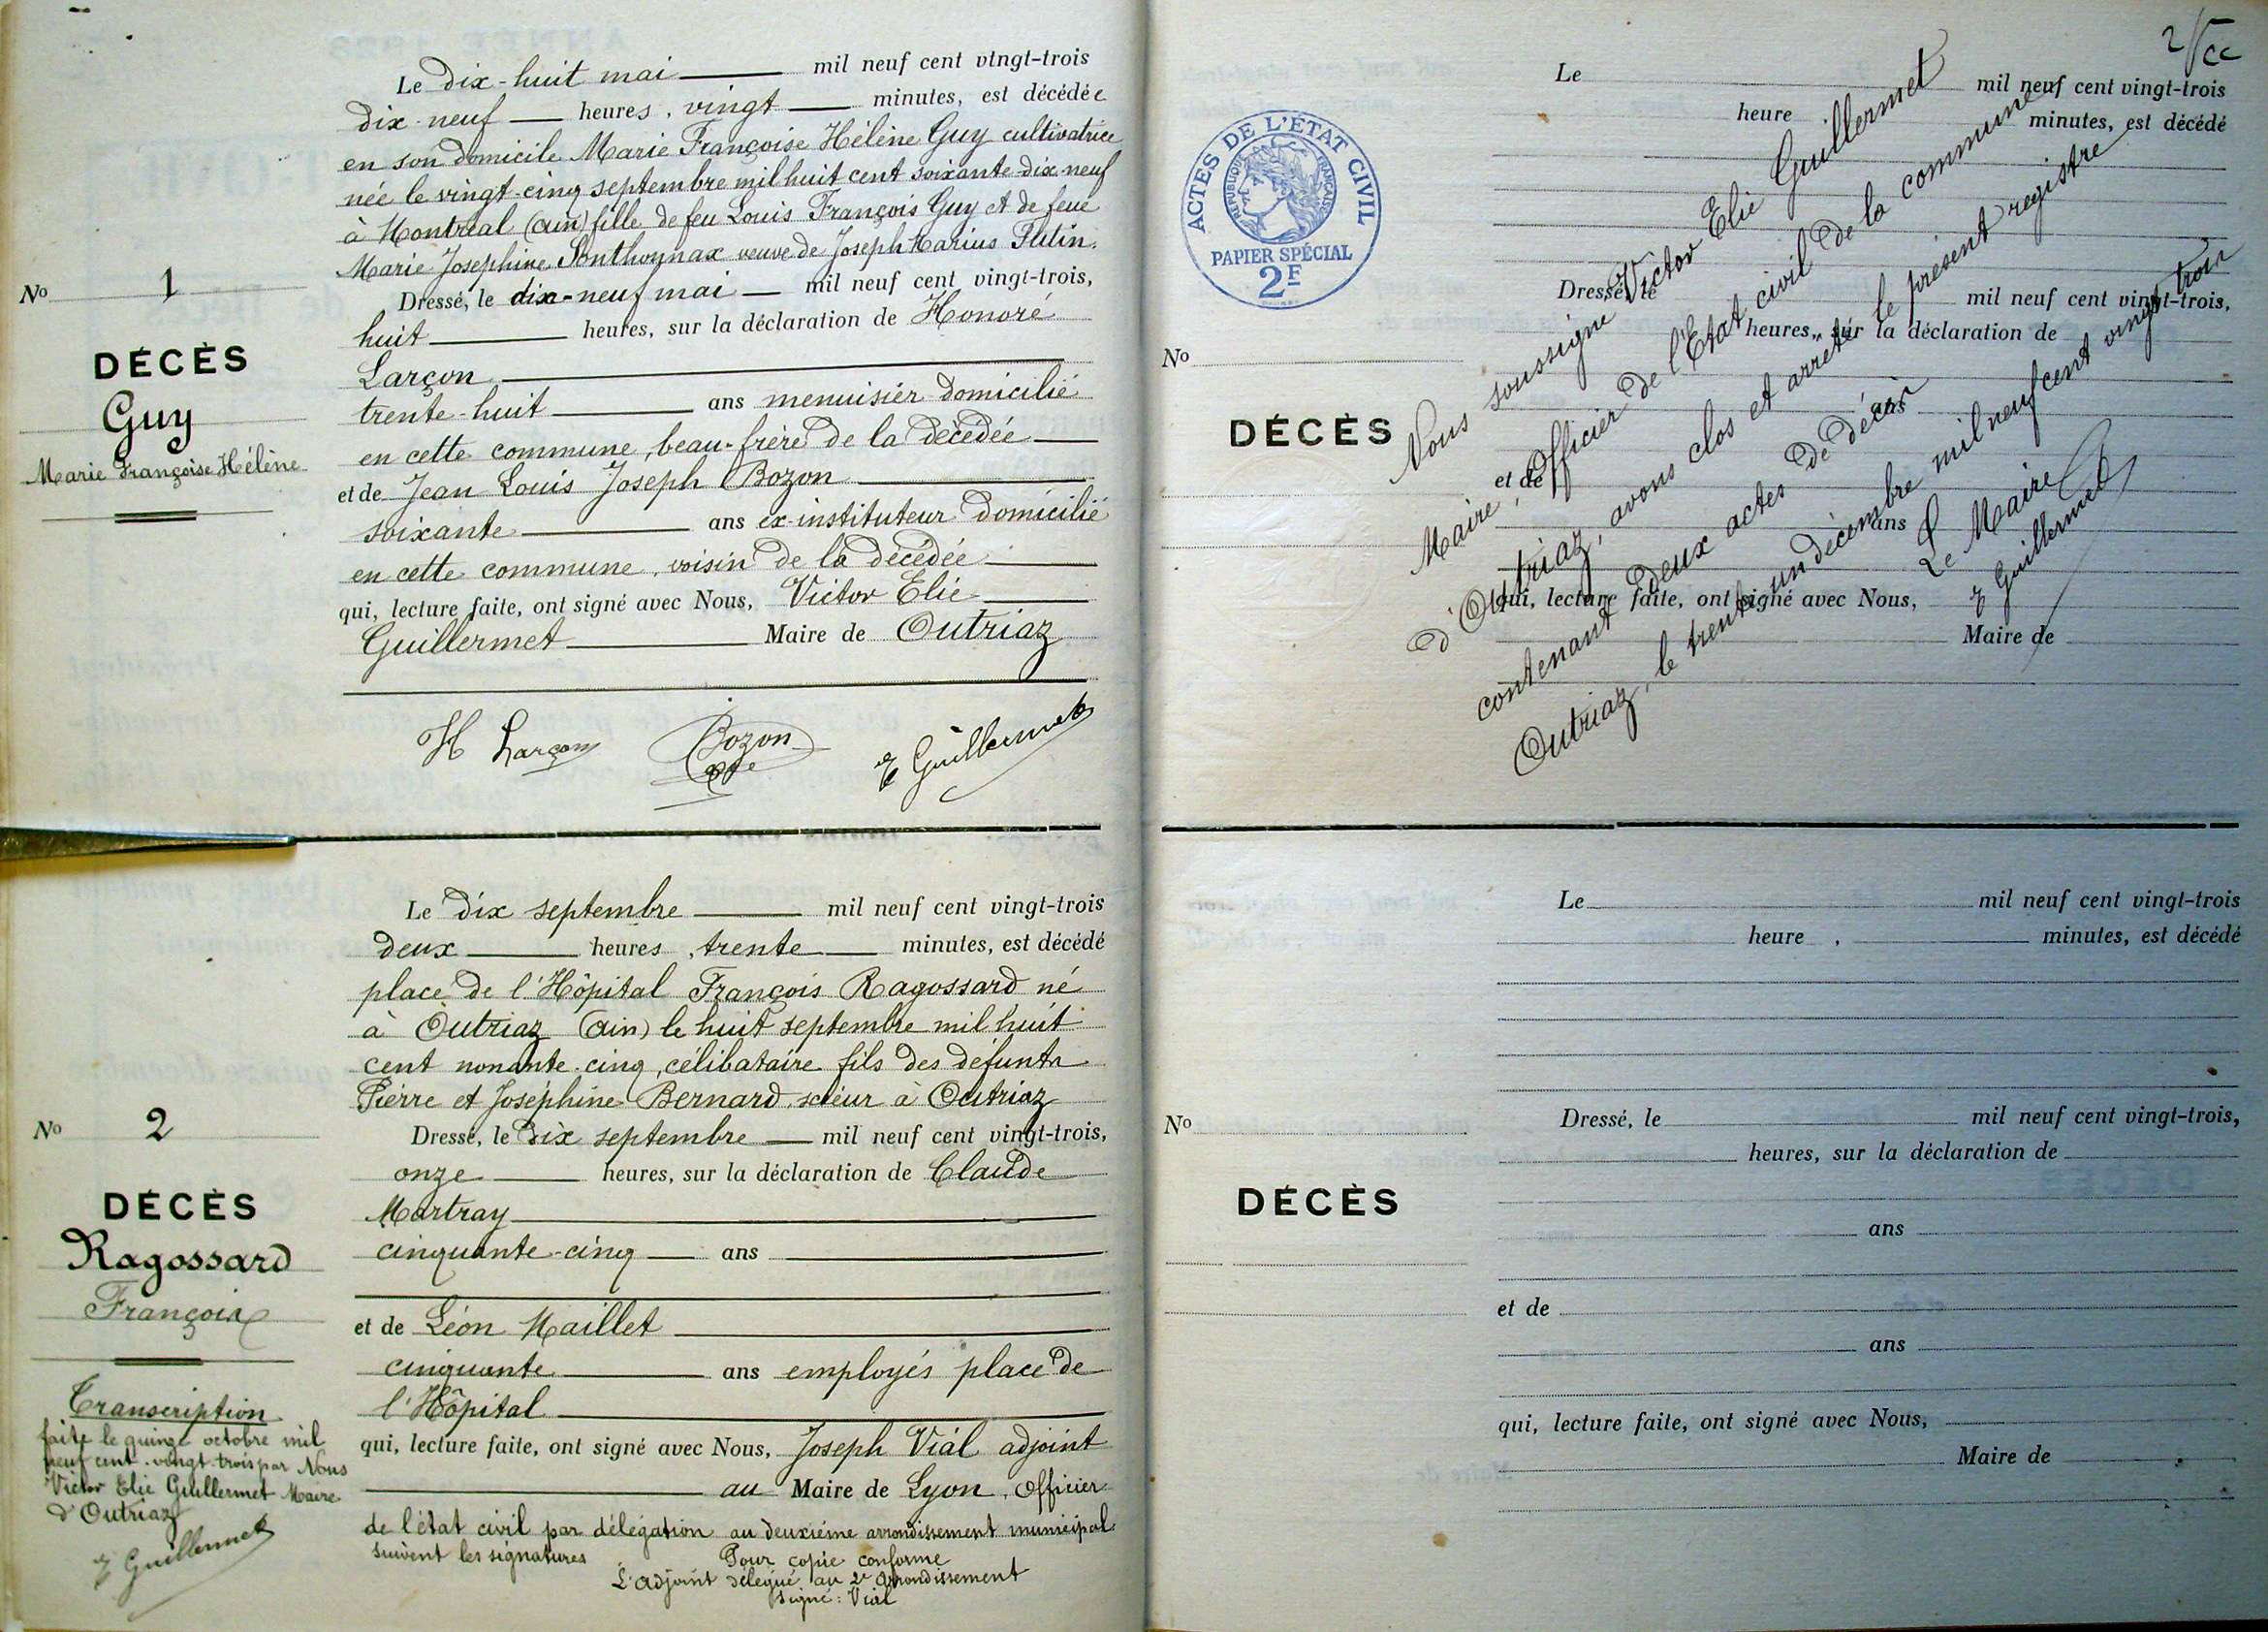 Le dix-huit mai mil neuf cent vingt-trois
dix-neuf heures, vingt minutes, est décédée
en son domicile Marie Françoise Hélène Guy cultivatrice
née le vingt-cinq septembre mil huit cent soixante-dix-neuf
à Montréal (Ain) fille de feu Louis François Guy et de feue
Marie Josephine Sonthonnax veuve de Joseph Marius Putin.
No 1
Dressé, le dix-neuf mai mil neuf cent vingt-trois,
huit heures, sur la déclaration de Honoré
DÉCÈS
Larçon
Guy
trente-huit ans menuisier domicilié
Marie Françoise Hélène
en cette commune, beau-frère de la décédée
et de Jean Louis Joseph Bozon
soixante ans ex-instituteur domicilié
en cette commune, voisin de la décédée
qui, lecture faite, ont signé avec Nous, Victor Elie
Guillermet Maire de Outriaz
H Larçon Bozon E Guillermet
Le dix septembre mil neuf cent vingt-trois
deux heures, trente minutes, est décédé
place de l'Hôpital François Ragossard né
à Outriaz (Ain) le huit septembre mil huit
cent nonante-cinq, célibataire fils des défunts
Pierre et Joséphine Bernard, scieur à Outriaz
No 2
Dressé, le dix septembre mil neuf cent vingt-trois,
onze heures, sur la déclaration de Claude
DÉCÈS
Martray
Ragossard
cinquante-cinq ans
François
et de Léon Maillet
cinquante ans employés place de
l'Hôpital
Transcription
faite le quinze octobre mil
neuf cent vingt-trois par Nous
Victor Elie Guillermet Maire
d'Outriaz
E Guillermet
qui, lecture faite, ont signé avec Nous, Joseph Vial adjoint
au Maire de Lyon, Officier
de l'état civil par délégation au deuxième arrondissement municipal
suivent les signatures
Pour copie conforme
L'adjoint délégué au 2e Arrondissement
signé: Vial
ACTES DE L'ÉTAT CIVIL
RÉPUBLIQUE FRANÇAISE
PAPIER SPÉCIAL
2F
Le mil neuf cent vingt-trois
heure minutes, est décédé
Dressé, le mil neuf cent vingt-trois,
heures, sur la déclaration de
No
DÉCÈS
ans
et de
ans
qui, lecture faite, ont signé avec Nous,
Maire de
Nous soussigné Victor Elie Guillermet
Maire, Officier de l'Etat civil de la commune
d'Outriaz, avons clos et arrêté le présent registre
contenant deux actes de décès
Outriaz, le trente un décembre mil neuf cent vingt trois
Le Maire
E Guillermet
Le mil neuf cent vingt-trois
heure, minutes, est décédé
No
Dressé, le mil neuf cent vingt-trois,
heures, sur la déclaration de
DÉCÈS
ans
et de
ans
qui, lecture faite, ont signé avec Nous,
Maire de